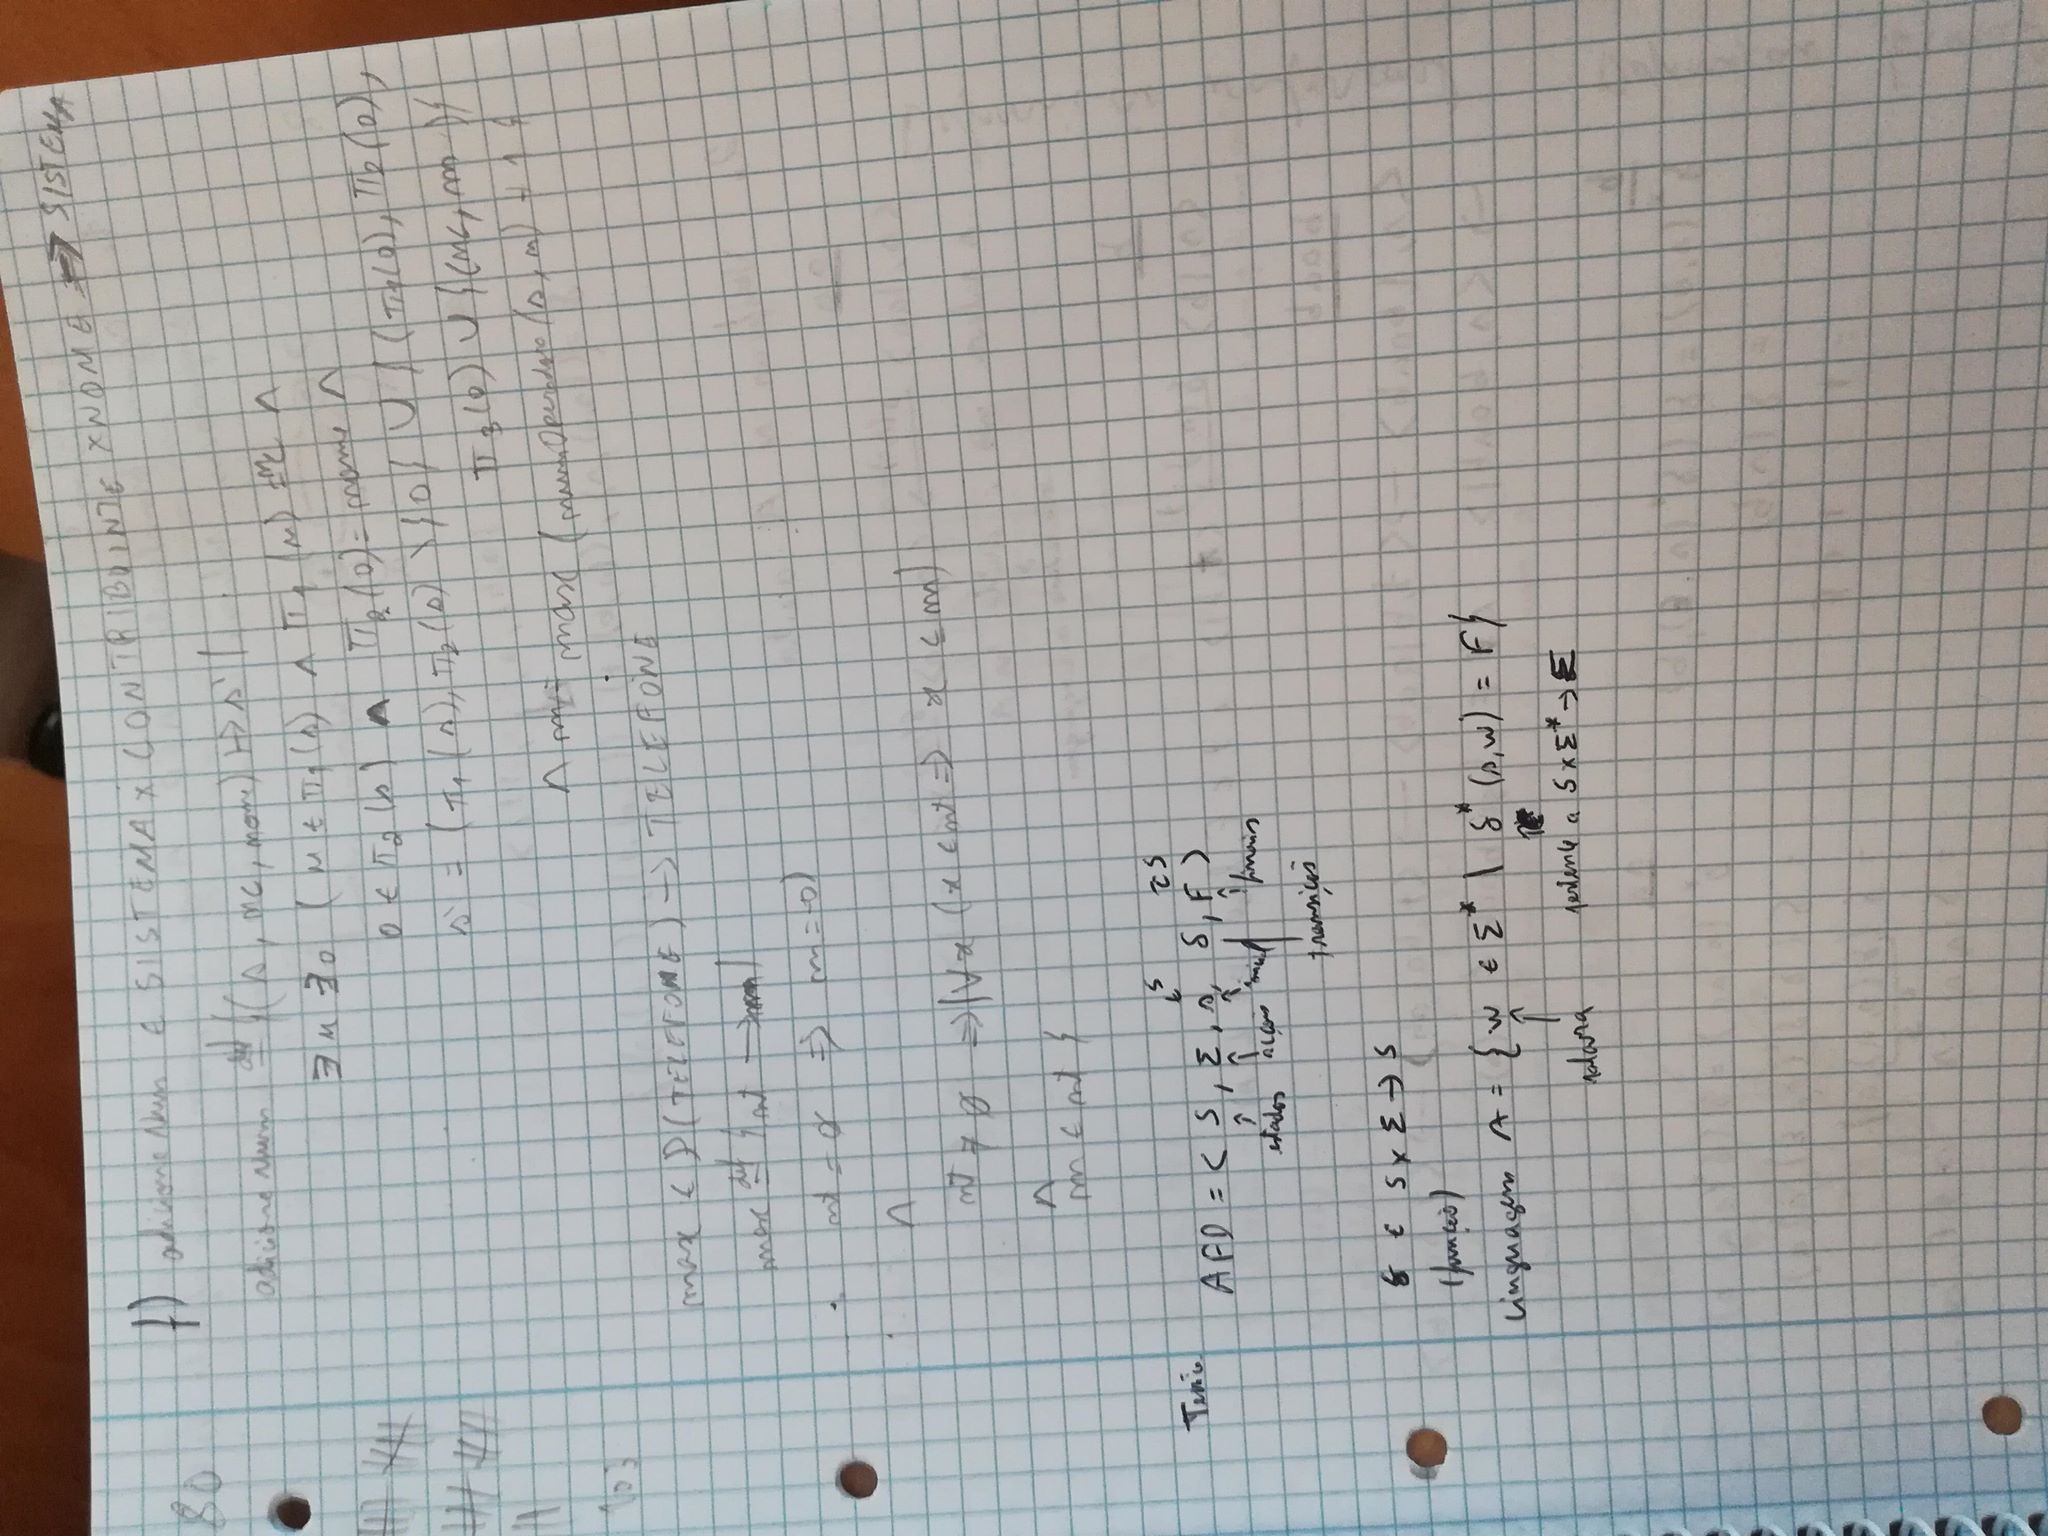 80
f) adicionenum ∈ SISTEMA × CONTRIBUINTE × NOME → SISTEMA
adicionenum def= {(s, nc, nome) ↦ s' |
∃u ∃o (u ∈ π1(s) ∧ π1(u) = nc ∧
o ∈ π2(s) ∧ π2(o) = nome ∧
s' = (π1(s), π2(s) \ {o} ∪ {(π1(o), π2(o),
π3(o) ∪ {(nc, nn)}
∧ nn = max (numOperador(s, n) + 1}
max ∈ P(TELEFONE) → TELEFONE
max def= { nt → m |
nt = ∅ ⇒ m = 0)
∧
nt ≠ ∅ ⇒ (∀x (x ∈ nt ⇒ x ≤ m)
∧
m ∈ nt }
∈S ⊆S
AFD = (S, Σ, s, δ, F)
estados inicial finais
transição
δ ∈ S × Σ → S
(função)
Linguagem A = {w ∈ Σ* | δ*(s, w) = F}
palavra pertence a S × Σ* → Σ